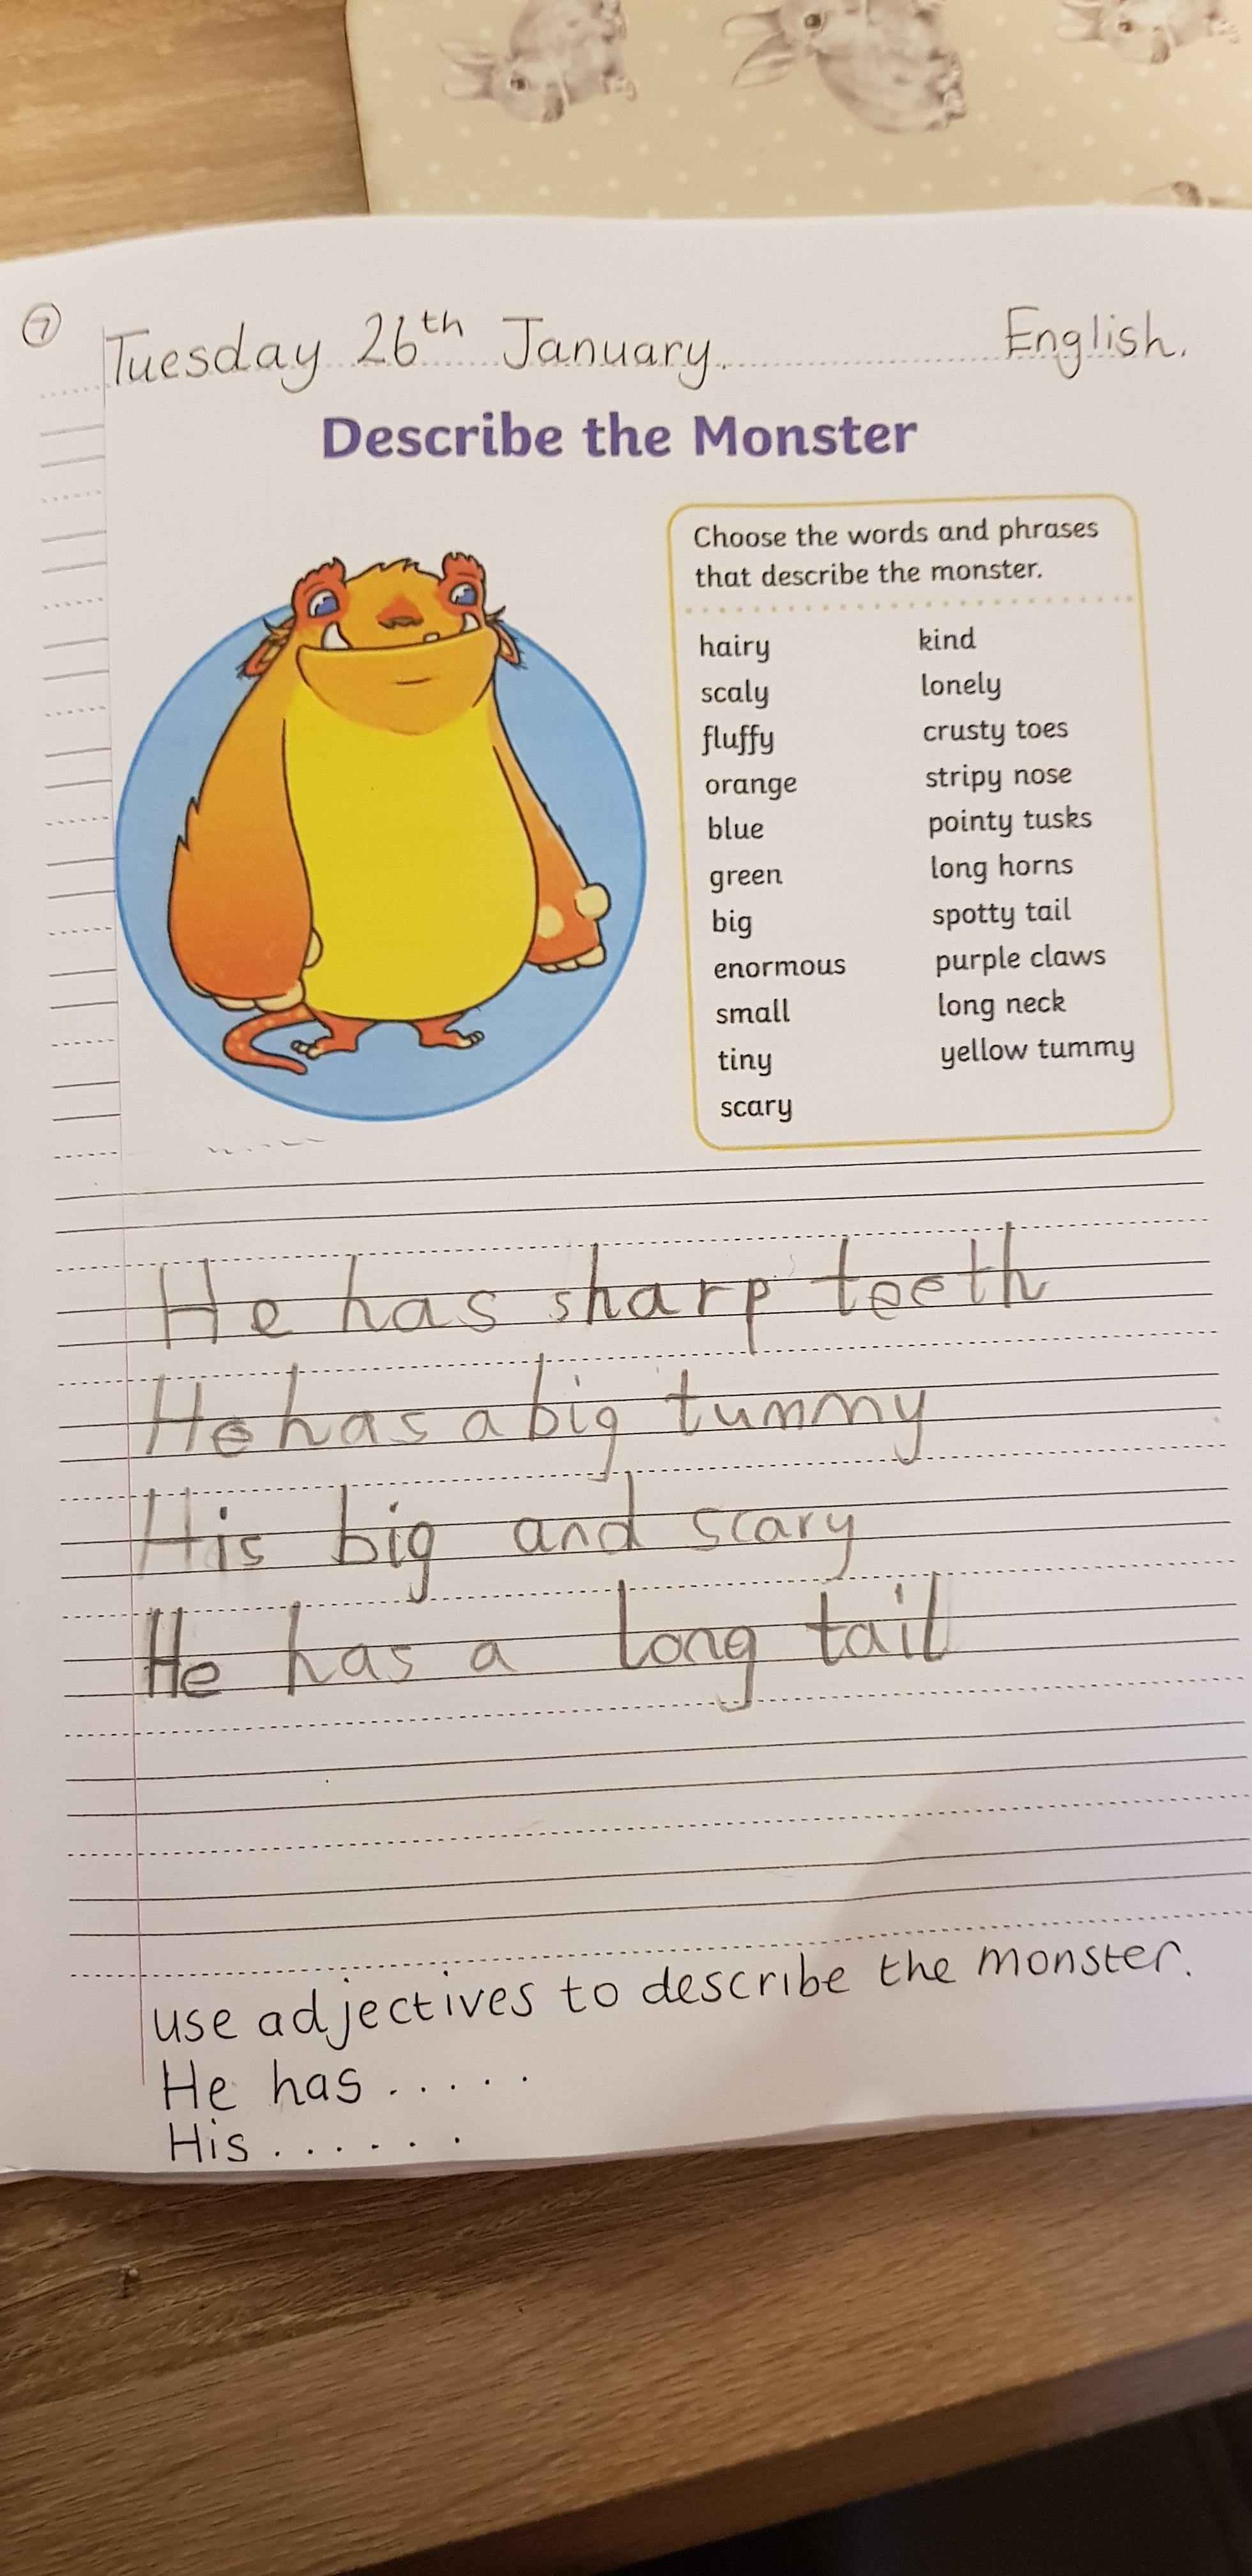 7
Tuesday 26th January. English.
Describe the Monster
Choose the words and phrases
that describe the monster.
hairy kind
scaly lonely
fluffy crusty toes
orange stripy nose
blue pointy tusks
green long horns
big spotty tail
enormous purple claws
small long neck
tiny yellow tummy
scary
He has sharp teeth
He has a big tummy
His big and scary
He has a long tail
use adjectives to describe the monster.
He has .....
His ......